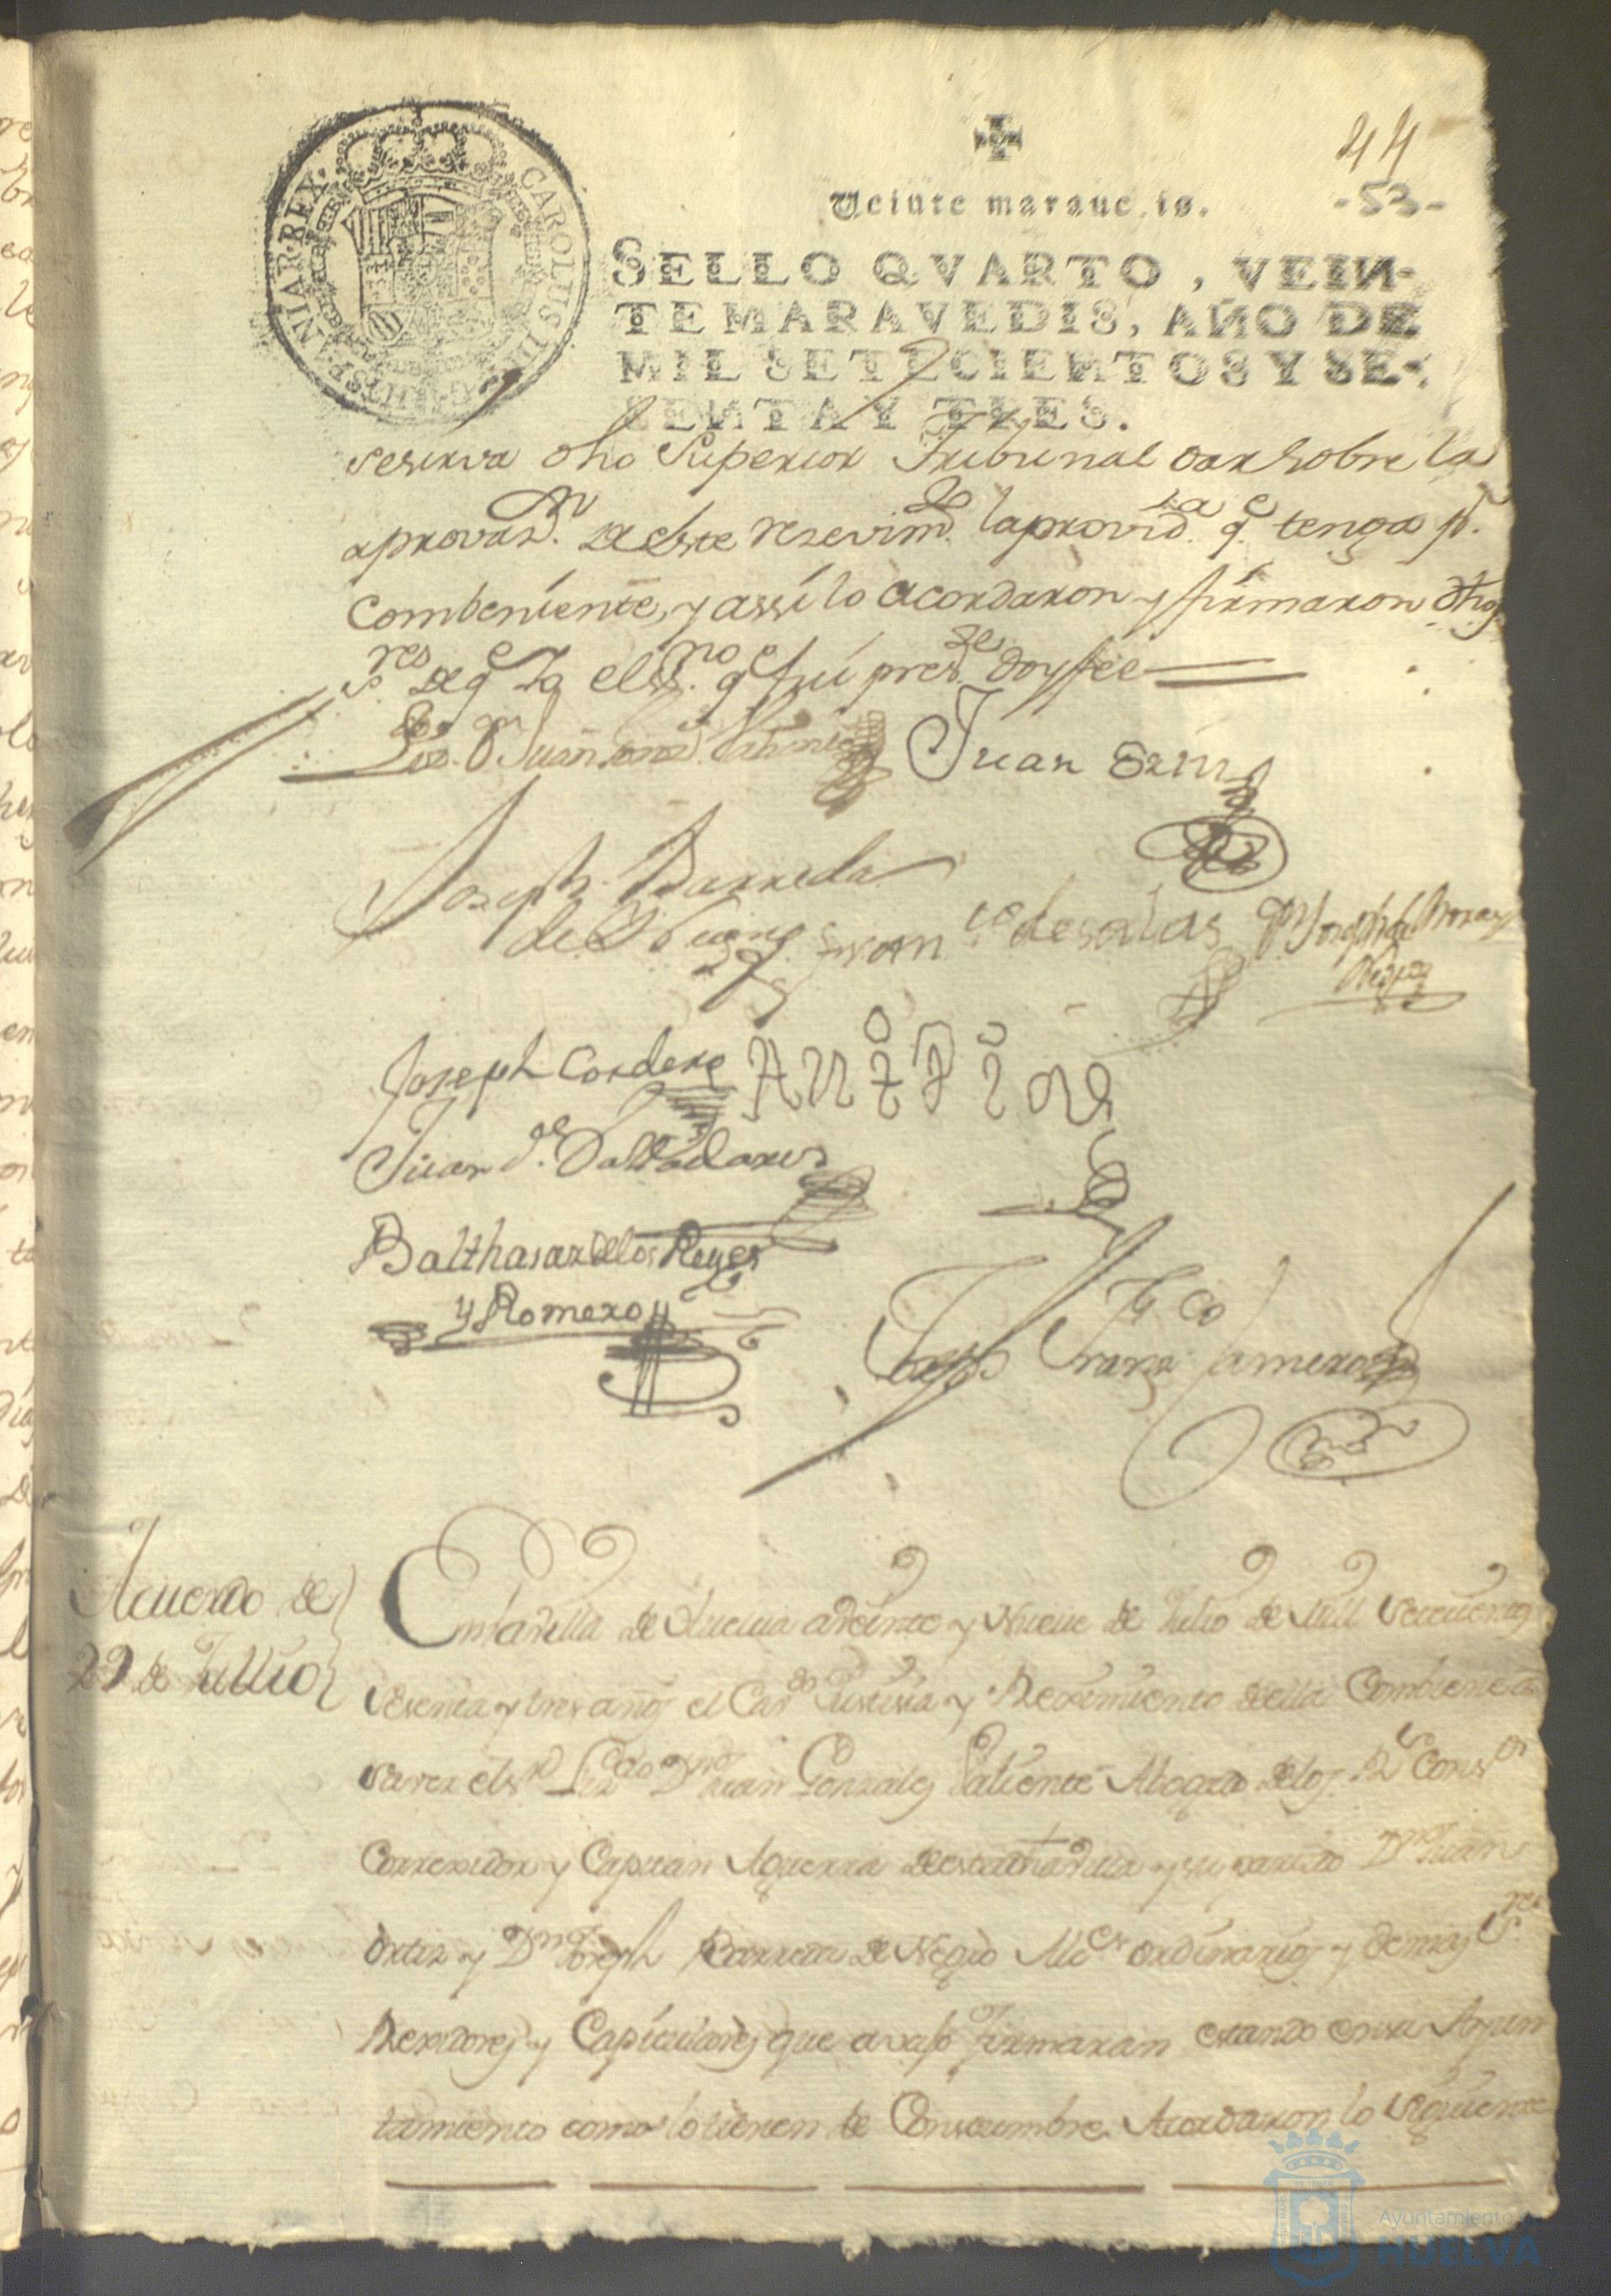 44
Veinte maravedis.
-53-
CAROLUS III D G HISPANIAR REX
SELLO QVARTO, VEIN-
TE MARAVEDIS, AÑO DE
MIL SETECIENTOS Y SE-
SENTA Y TRES.
reserva dho Superior Tribunal dar sobre la
aprovazn. de este resevimto. la provida. qe. tenga pr.
combeniente, y assi lo acordaron y firmaron dhos
sres de qe Yo el ssno. qe fui presste. doy fee
Lizdo. Dn Juan Gonz. Valiente
Juan Ortiz
Joseph Barreda
de
Franco de salas
Dn Joseph de
Joseph Cordero
Juan de Valladares
Balthasar de los Reyes
y Romero
Joseph Franco Romero
Acuerdo de
29 de Jullio
En la Villa de Huelva a Veinte y Nueve de Julio de Mill Setecientos
Sesenta y tres años el Cavdo Justisia y Reximiento de ella Combiene a
saver el sr Lizdo Dn Juan Gonzales Valiente Abogado de los Rs Conss
Correxidor y Capitan Aguerra de esta dha Villa y su partido Dn Juan
Ortiz y Dn Joseph Barreda de Negro Alces ordinarios y demas Sres
Rexidores y Capitulares que avajo firmaran estando en su Ayun
tamiento como lo tienen de Constumbre Acordaron lo siguiente
Ayuntamiento
HUELVA